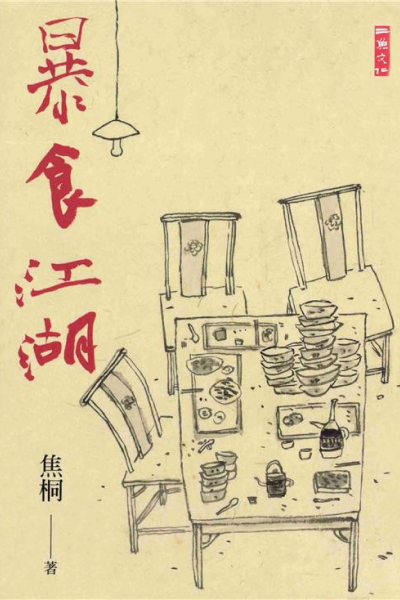 暴食江湖
焦桐
著
二魚文化